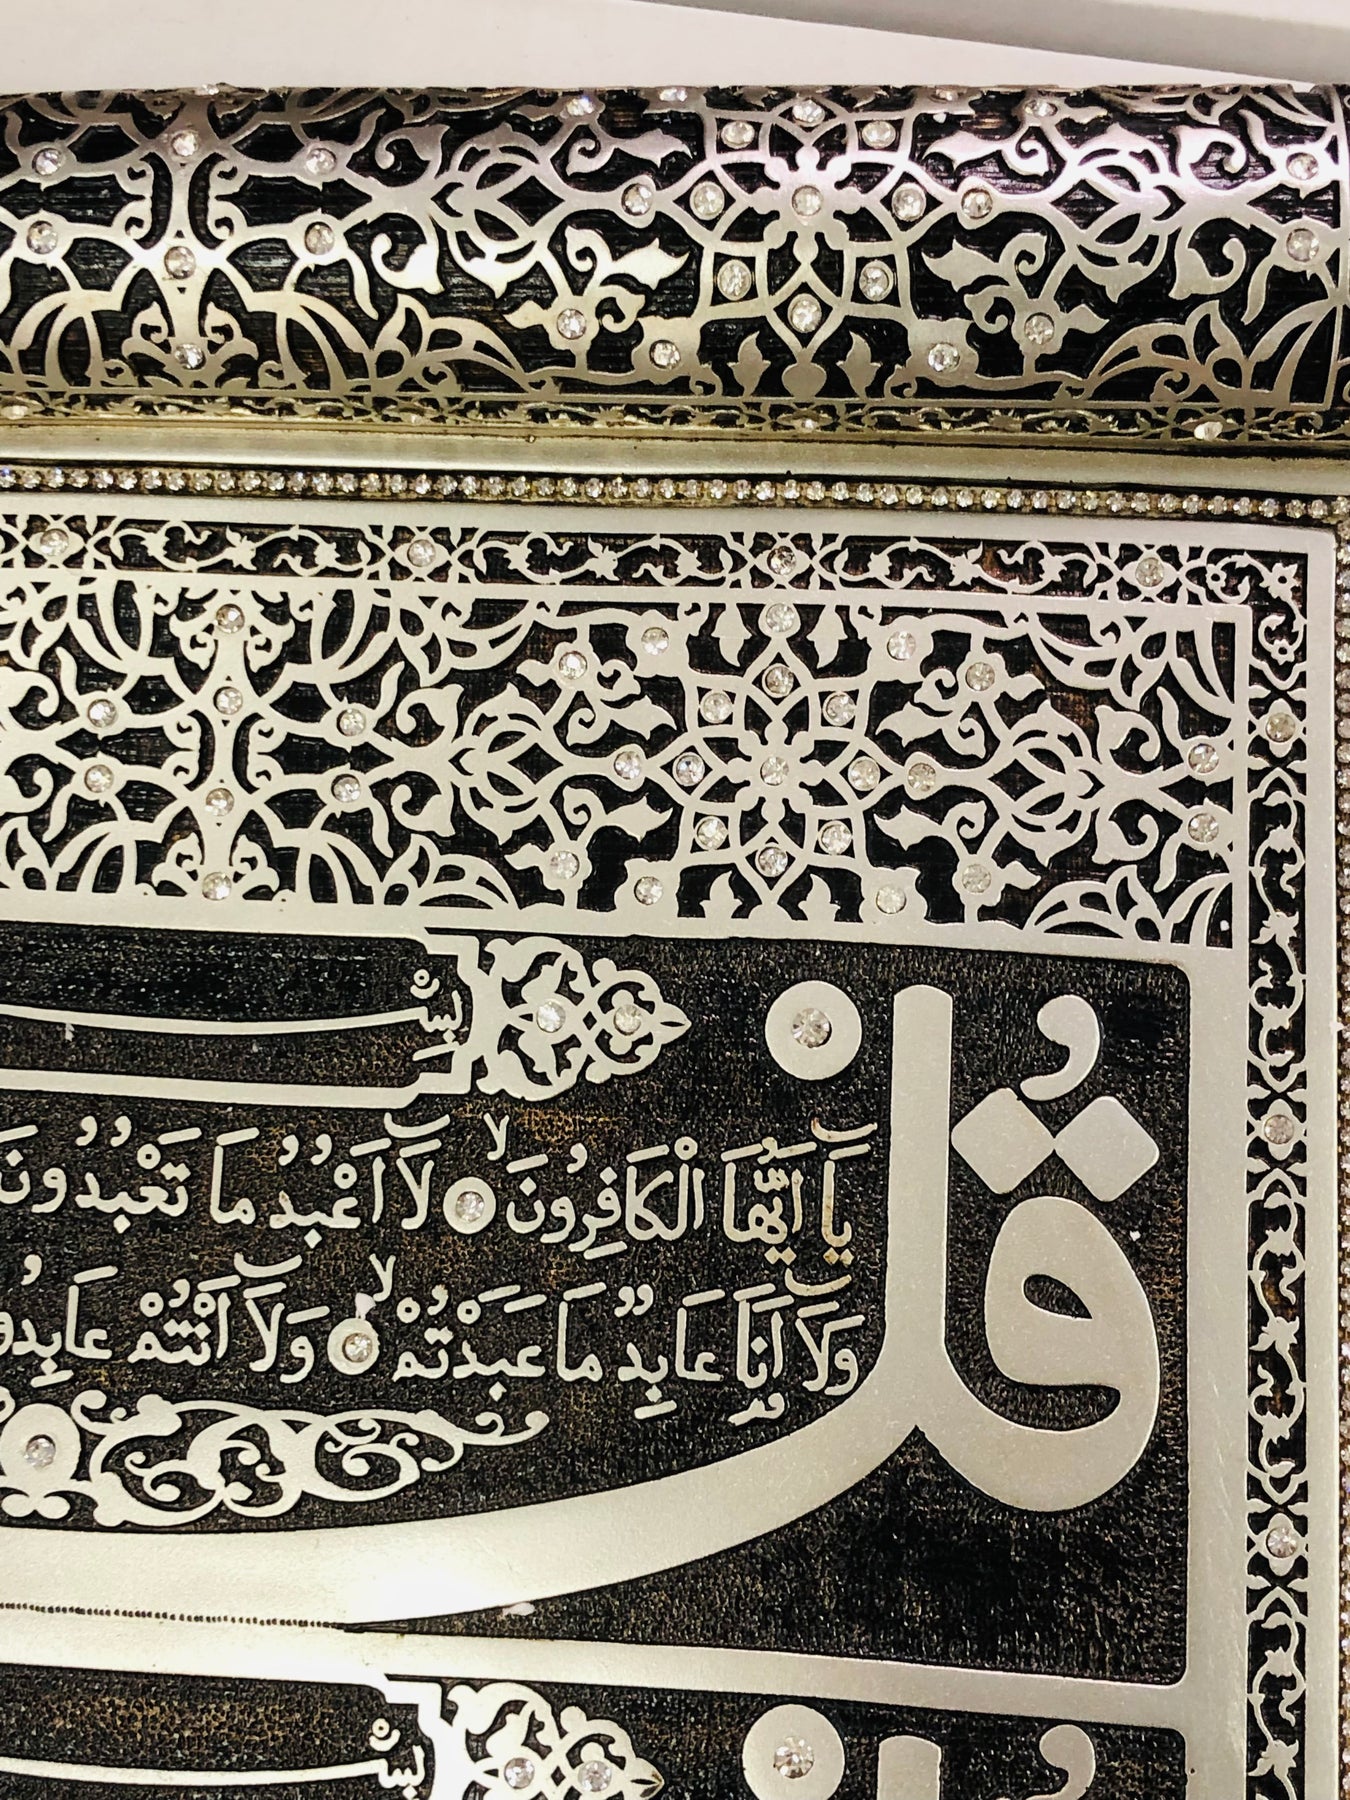 بِسْـ
قُلْ
يَٓا اَيُّهَا الْكَافِرُونَۙ لَٓا اَعْبُدُ مَا تَعْبُدُونَ
وَلَٓا اَنَا۬ عَابِدٌ مَا عَبَدْتُمْۙ وَلَٓا اَنْتُمْ
بِسْـ